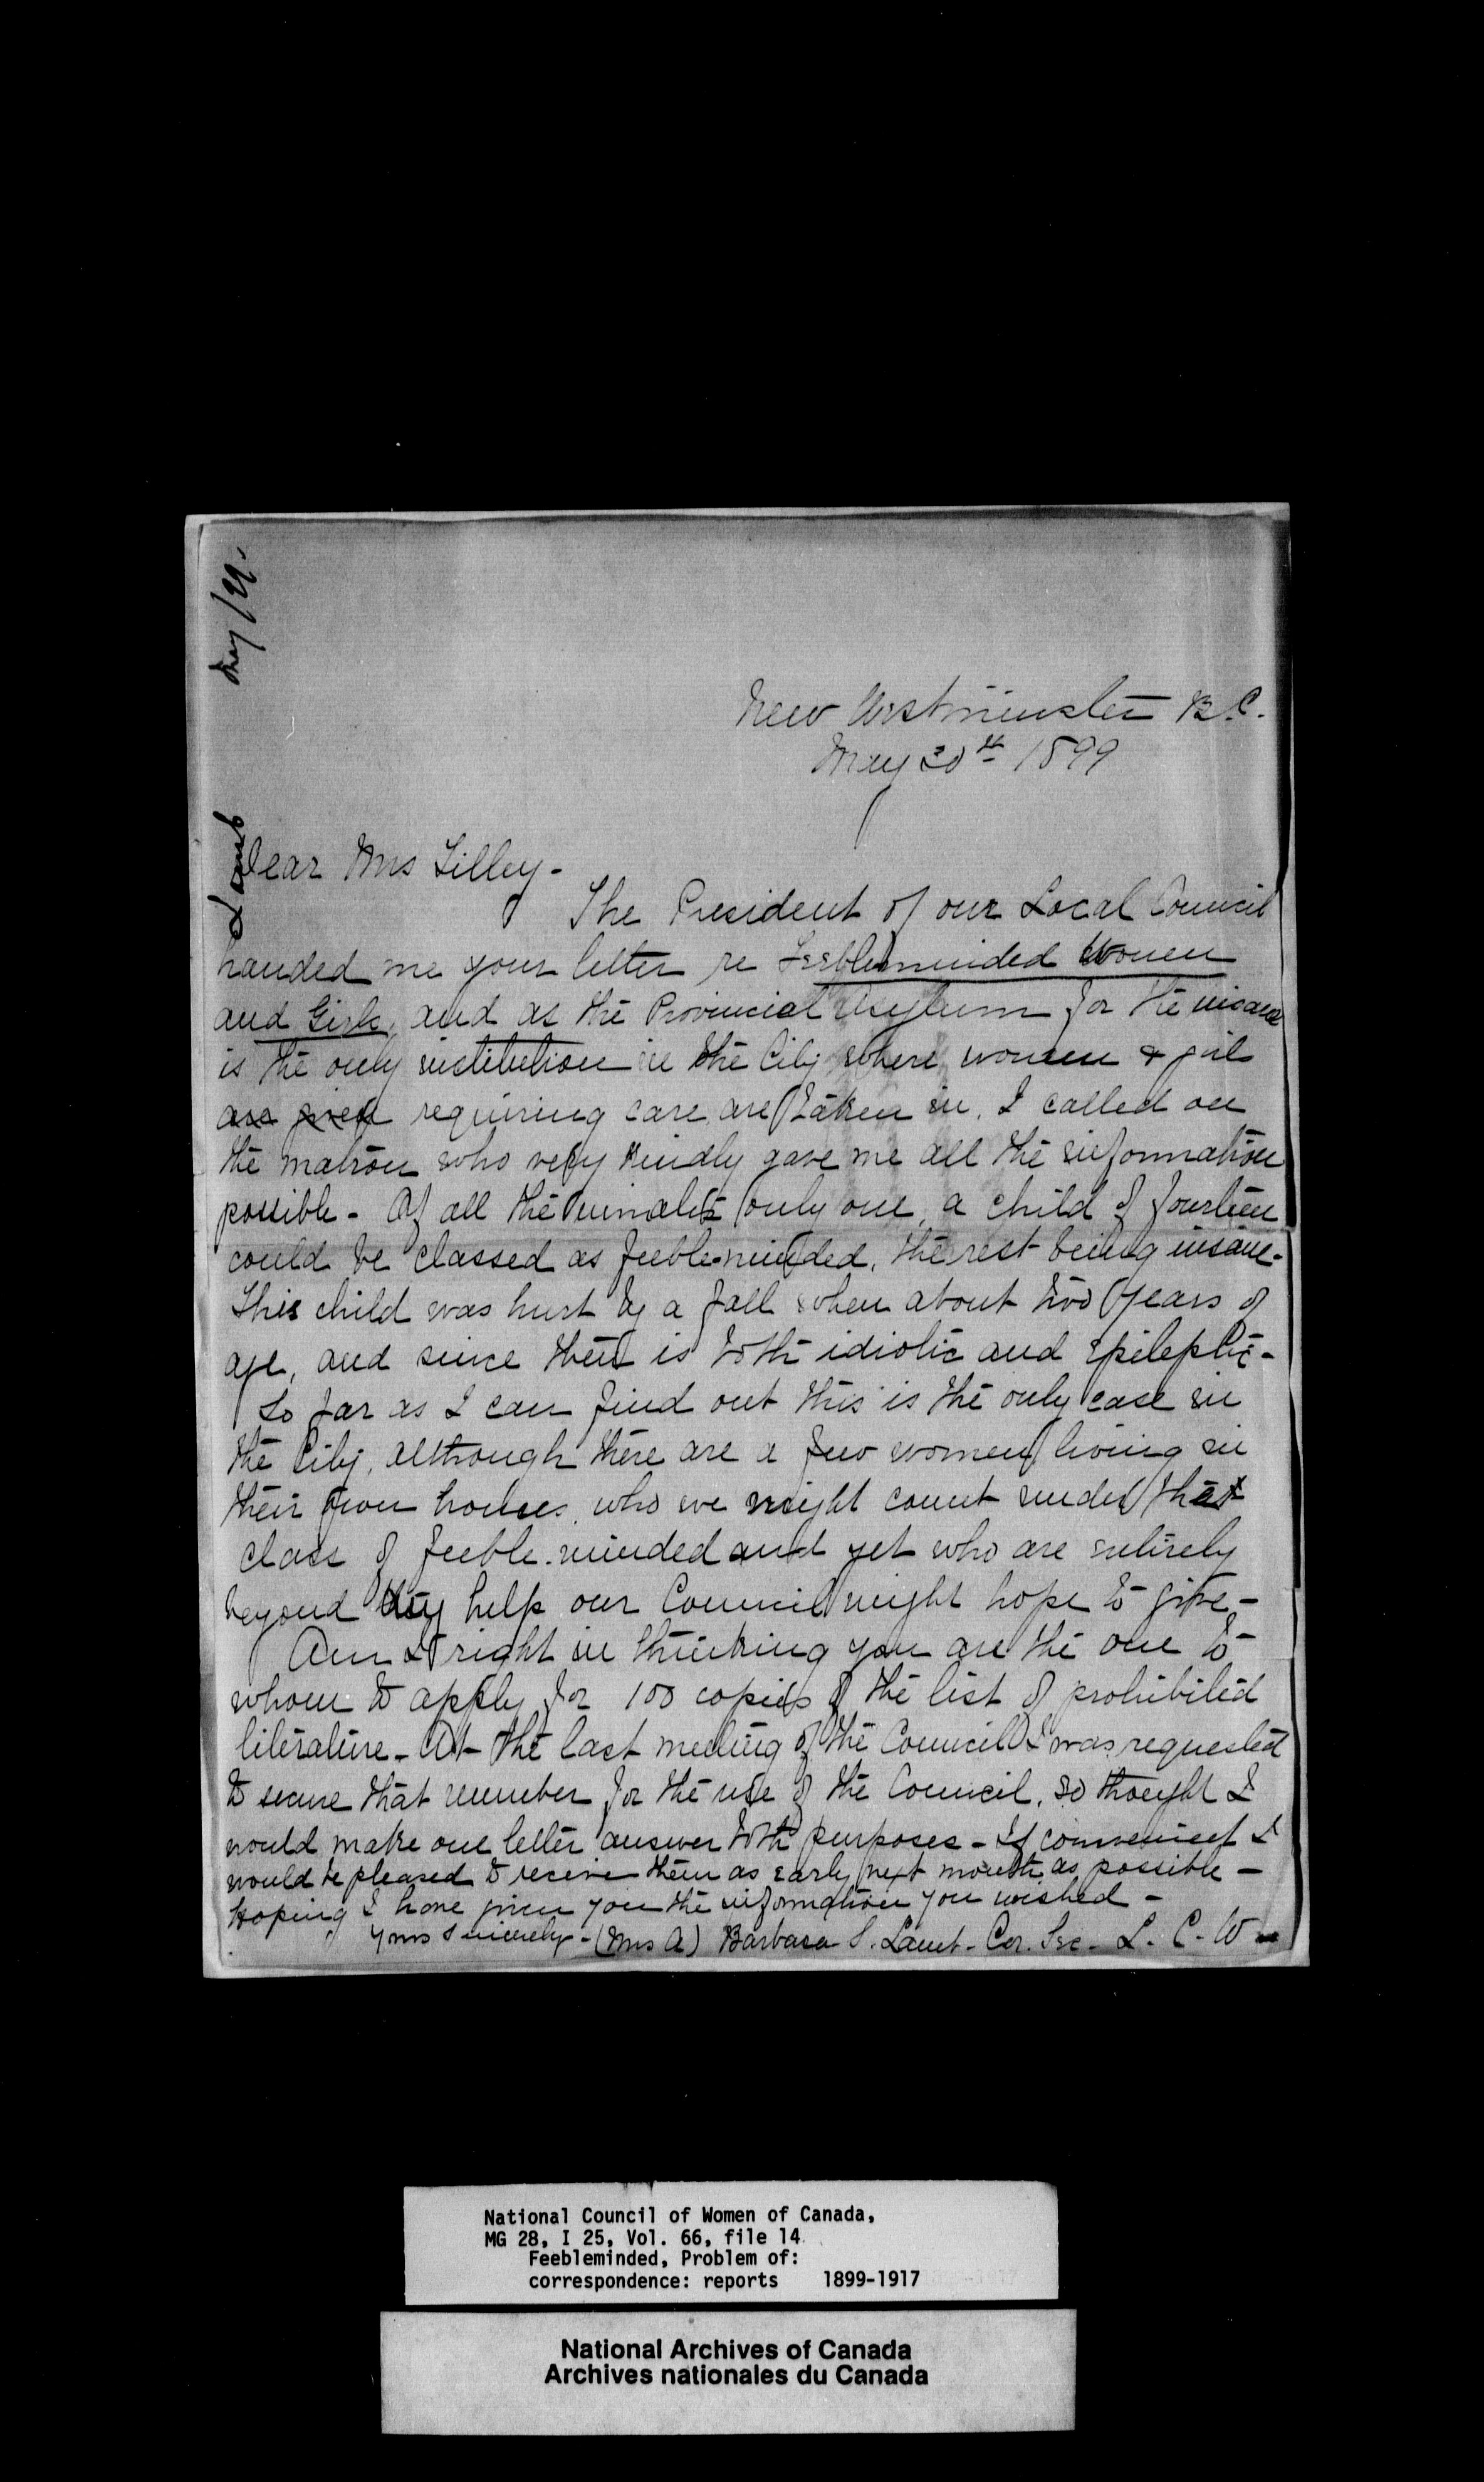 May/99.
Lamb
New Westminster B.C.
May 30th 1899
Dear Mrs Tilley -
The President of our Local Council
handed me your letter re Feebleminded Women
and Girls, and as the Provincial Asylum for the insane
is the only institution in the City where women & girls
are requiring care are taken in, I called on
the matron who very kindly gave me all the information
possible - Of all the inmates only one, a child of fourteen
could be classed as feeble-minded, the rest being insane -
This child was hurt by a fall when about two years of
age, and since then is both idiotic and epileptic -
So far as I can find out this is the only case in
the City, although there are a few women living in
their own homes, who we might count under that
class of feeble-minded and yet who are entirely
beyond any help our Council might hope to give -
Am I right in thinking you are the one to
whom to apply for 100 copies of the list of prohibited
literature - At the last meeting of the Council I was requested
to secure that number for the use of the Council, so thought I
would make one letter answer both purposes - If convenient I
would be pleased to receive them as early next month as possible -
Hoping I have given you the information you wished -
Yours Sincerely - (Mrs A) Barbara S. - Cor. Sec. L. C. W -
National Council of Women of Canada,
MG 28, I 25, Vol. 66, file 14
Feebleminded, Problem of:
correspondence: reports 1899-1917
National Archives of Canada
Archives nationales du Canada